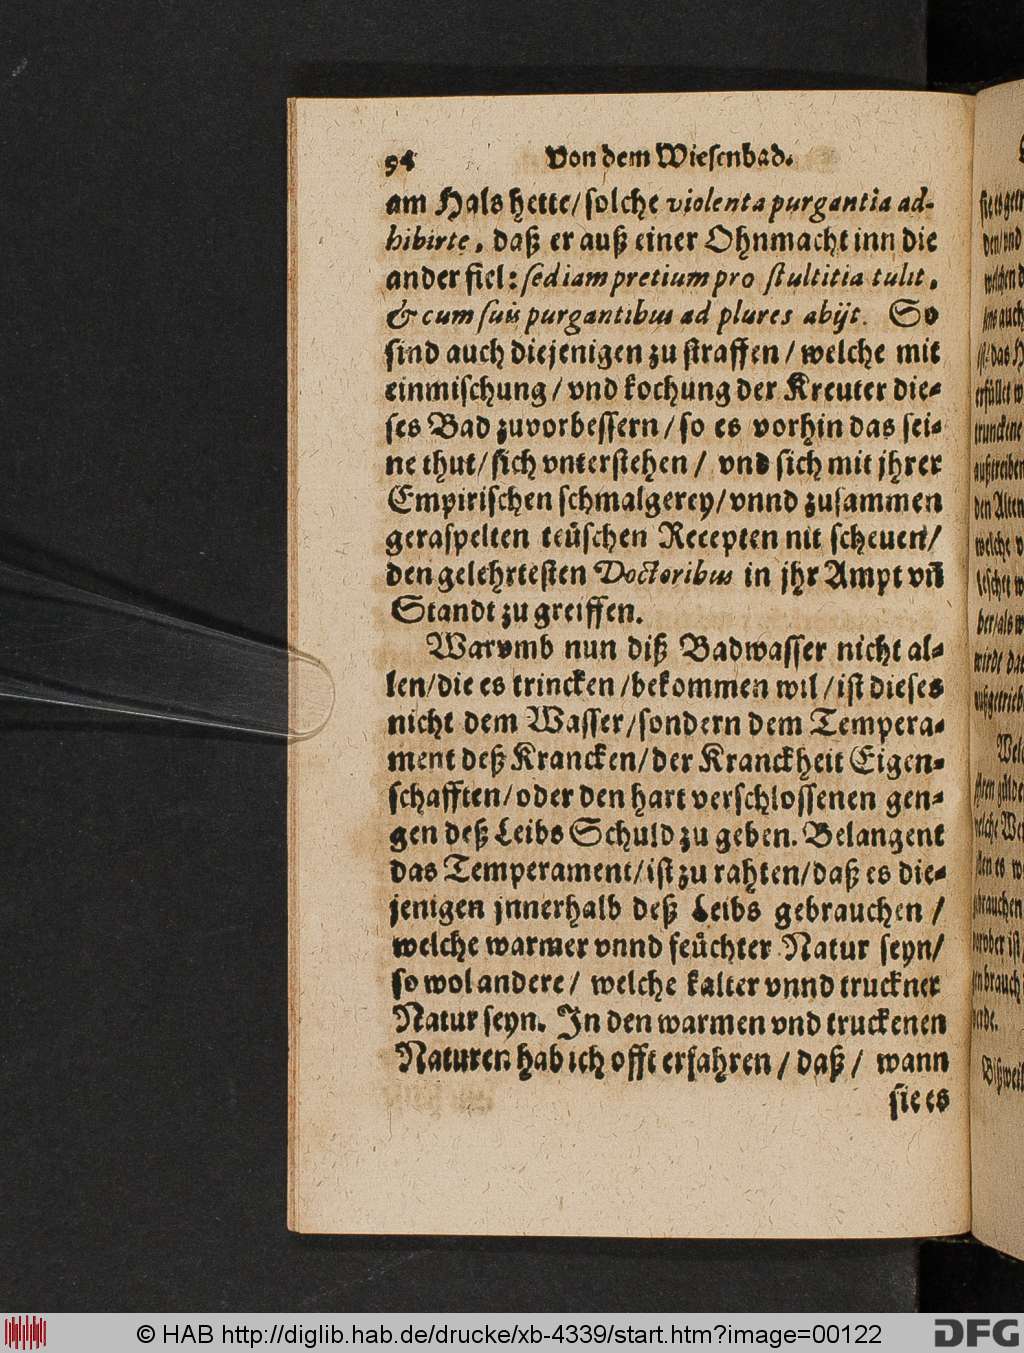 94 Von dem Wiesenbad.
am Hals hette/ solche violenta purgantia ad-
hibirte, daß er auß einer Ohnmacht inn die
ander fiel: sed iam pretium pro stultitia tulit,
& cum suis purgantibus ad plures abijt. So
sind auch diejenigen zu straffen / welche mit
einmischung / vnd kochung der Kreuter die-
ses Bad zuvorbessern / so es vorhin das sei-
ne thut/ sich vnterstehen / vnd sich mit jhrer
Empirischen schmalgerey/ vnnd zusammen
geraspelten teüschen Recepten nit scheuen/
den gelehrtesten Doctoribus in jhr Ampt vñ
Standt zu greiffen.
Warvmb nun diß Badwasser nicht al-
len/ die es trincken / bekommen wil / ist dieses
nicht dem Wasser/ sondern dem Tempera-
ment deß Krancken/ der Kranckheit Eigen-
schafften/ oder den hart verschlossenen gen-
gen deß Leibs Schuld zu geben. Belangent
das Temperament/ ist zu rahten/ daß es die-
jenigen jnnerhalb deß Leibs gebrauchen /
welche warmer vnnd feüchter Natur seyn/
so wol andere / welche kalter vnnd truckner
Natur seyn. In den warmen vnd truckenen
Naturen hab ich offt erfahren / daß / wann
sie es
© HAB http://diglib.hab.de/drucke/xb-4339/start.htm?image=00122
DFG